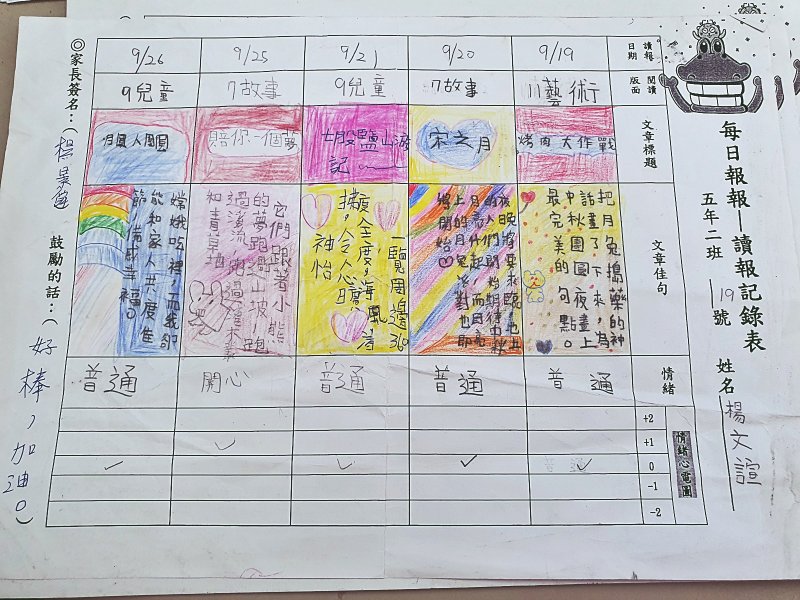 每日報報—讀報記錄表
五年二班 19號 姓名 楊文諠
讀報日期
9/19
9/20
9/21
9/25
9/26
閱讀版面
11藝術
7故事
9兒童
7故事
9兒童
文章標題
烤肉大作戰
宋之月
賠你一個夢
月圓人團圓
文章佳句
把月兔搗藥的神
話畫了下來，為
中秋團圓夜畫上
最完美的句點。
夜晚將要來臨，地上
的人們開始期待中秋
月亮升起，而月亮
上的月兔派對也即
將開始
一覽周邊360
度，海風
令人心曠
神怡
它們跟著小熊
的夢跑過山坡，跑
過溪流，跑過
嫦娥
能和家人共度佳
節，當成幸福。
情緒
普通
普通
普通
開心
普通
情緒心電圖
+2
+1
0
-1
-2
◎家長簽名：（
鼓勵的話：（好棒，加油。）